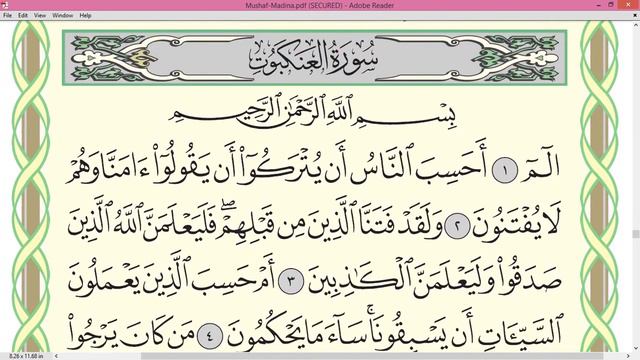 Mushaf-Madina.pdf (SECURED) - Adobe Reader
File Edit View Window Help
سُورَةُ العَنكَبُوتِ
بِسْمِ ٱللَّهِ ٱلرَّحْمَٰنِ ٱلرَّحِيمِ
الٓمٓ ١ أَحَسِبَ ٱلنَّاسُ أَن يُتْرَكُوٓا۟ أَن يَقُولُوٓا۟ ءَامَنَّا وَهُمْ
لَا يُفْتَنُونَ ٢ وَلَقَدْ فَتَنَّا ٱلَّذِينَ مِن قَبْلِهِمْ ۖ فَلَيَعْلَمَنَّ ٱللَّهُ ٱلَّذِينَ
صَدَقُوا۟ وَلَيَعْلَمَنَّ ٱلْكَٰذِبِينَ ٣ أَمْ حَسِبَ ٱلَّذِينَ يَعْمَلُونَ
ٱلسَّيِّـَٔاتِ أَن يَسْبِقُونَا ۚ سَآءَ مَا يَحْكُمُونَ ٤ مَن كَانَ يَرْجُوا۟
8.26 x 11.68 in